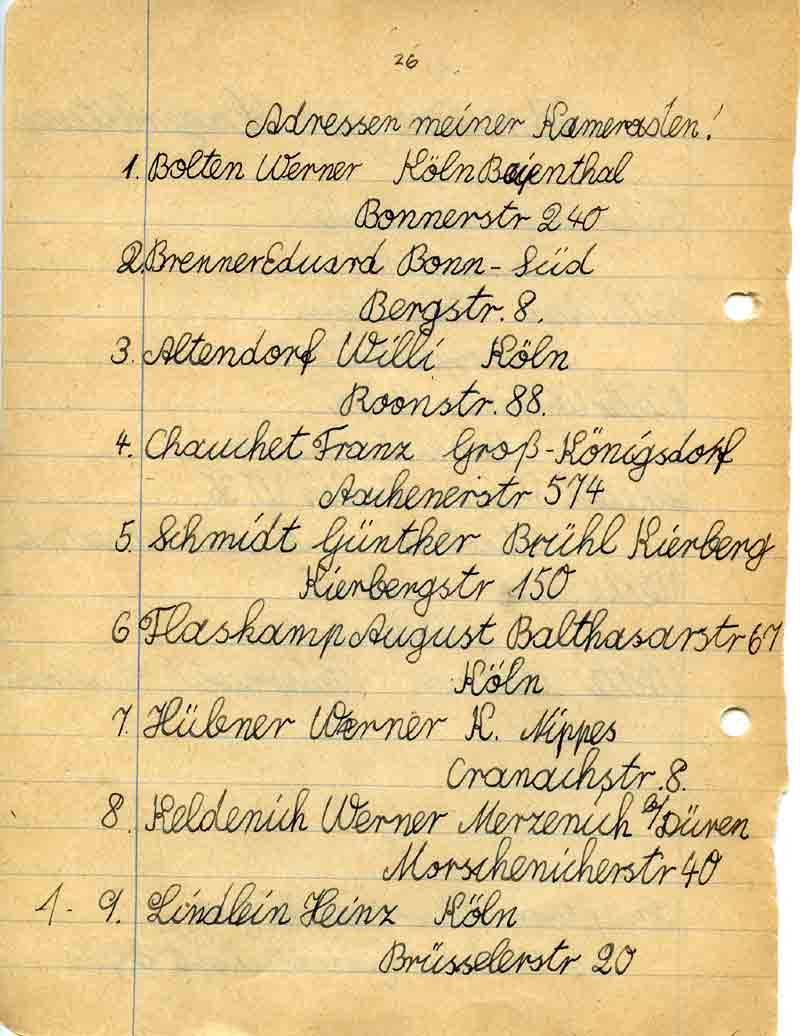 26
Adressen meiner Kameraden!
1. Bolten Werner Köln Baienthal
Bonnerstr 240
2. Brenner Eduard Bonn-Süd
Bergstr. 8.
3. Altendorf Willi Köln
Roonstr. 88.
4. Chauchet Franz Groß-Königsdorf
Aachenerstr 574
5. Schmidt Günther Brühl Kierberg
Kierbergstr 150
6 Flaskamp August Balthasarstr 67
Köln
7. Hübner Werner K. Nippes
Cranachstr. 8.
8. Keldenich Werner Merzenich b/Düren
Morschenicherstr 40
1- 9. Lindlein Heinz Köln
Brüsselerstr 20